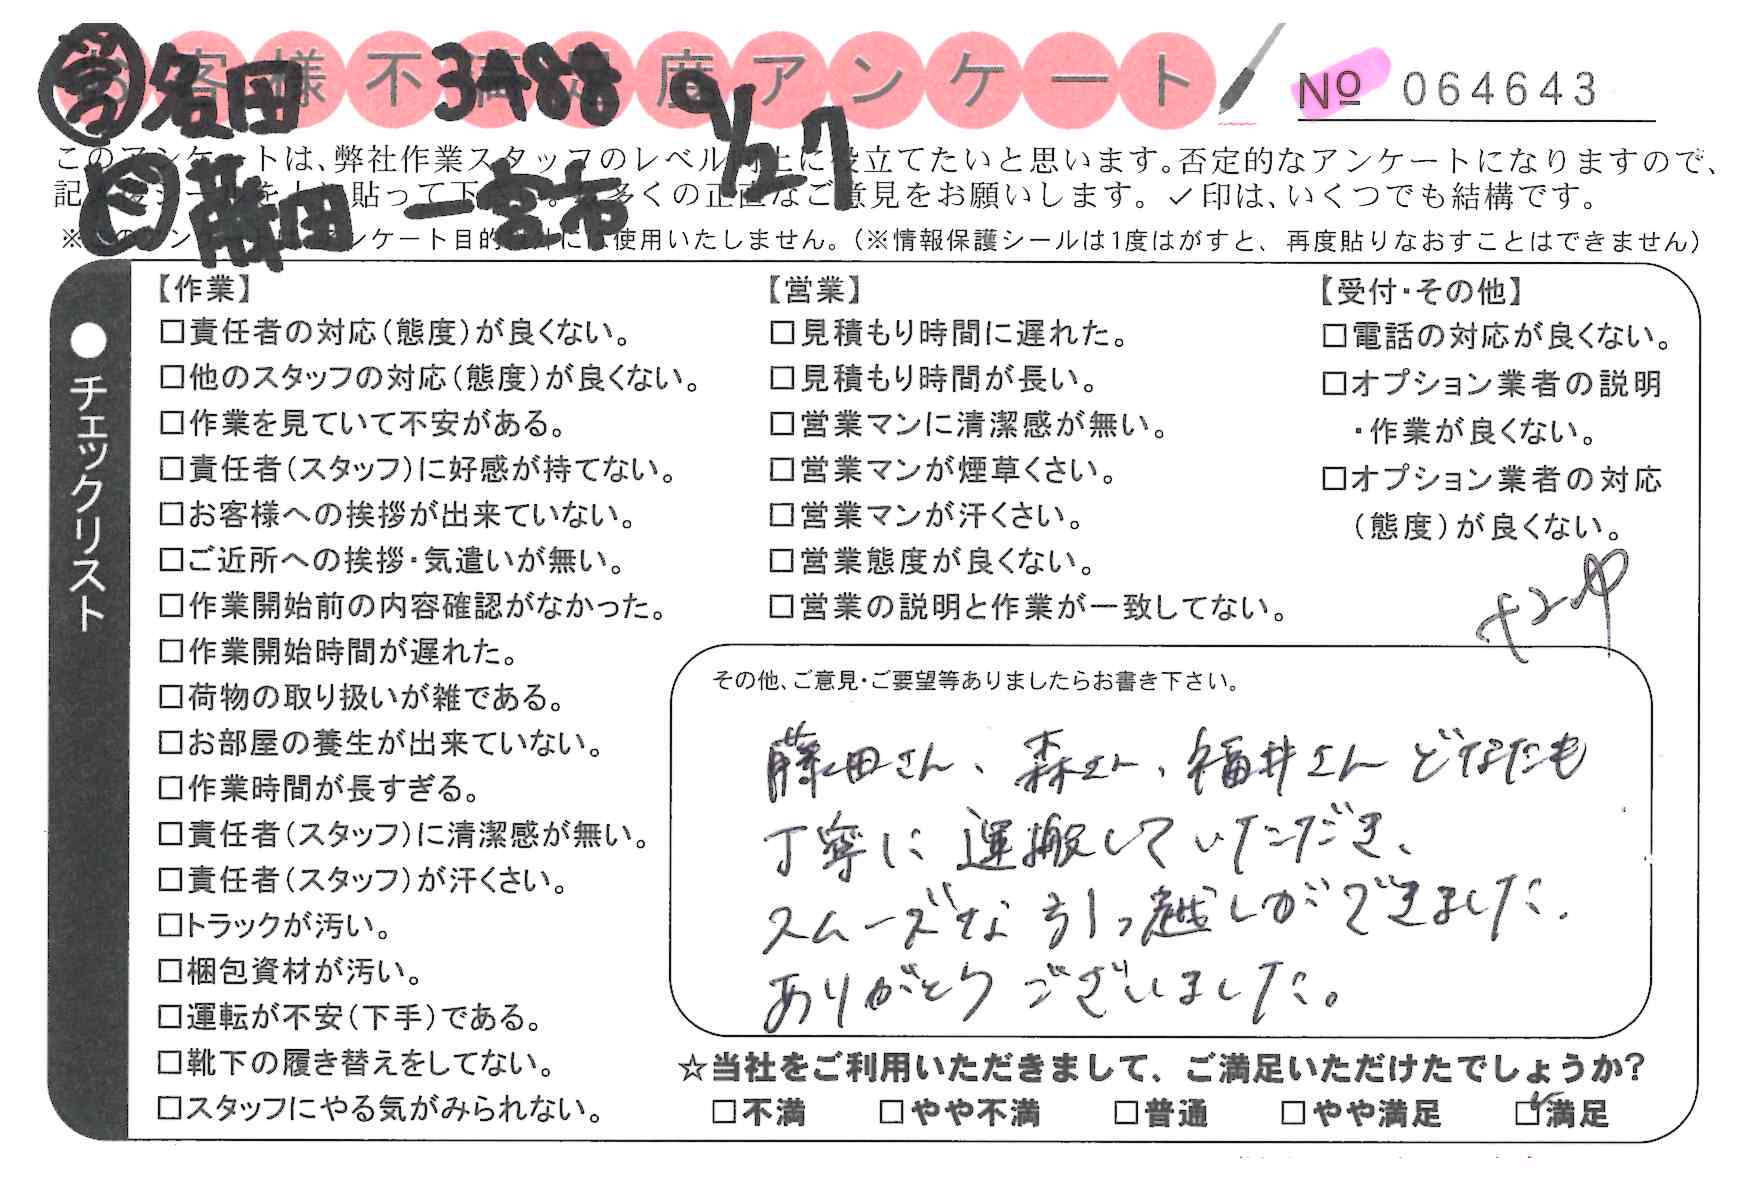 お客様不満足度アンケート
No 064643
このアンケートは、弊社作業スタッフのレベル向上に役立てたいと思います。否定的なアンケートになりますので、
を 貼って下 多くの正直なご意見をお願いします。✓印は、いくつでも結構です。
アンケート目的以外には使用いたしません。(※情報保護シールは1度はがすと、再度貼りなおすことはできません)
田
9/27
藤田 一宮市
●チェックリスト
【作業】
□責任者の対応(態度)が良くない。
□他のスタッフの対応(態度)が良くない。
□作業を見ていて不安がある。
□責任者(スタッフ)に好感が持てない。
□お客様への挨拶が出来ていない。
□ご近所への挨拶・気遣いが無い。
□作業開始前の内容確認がなかった。
□作業開始時間が遅れた。
□荷物の取り扱いが雑である。
□お部屋の養生が出来ていない。
□作業時間が長すぎる。
□責任者(スタッフ)に清潔感が無い。
□責任者(スタッフ)が汗くさい。
□トラックが汚い。
□梱包資材が汚い。
□運転が不安(下手)である。
□靴下の履き替えをしてない。
□スタッフにやる気がみられない。
【営業】
□見積もり時間に遅れた。
□見積もり時間が長い。
□営業マンに清潔感が無い。
□営業マンが煙草くさい。
□営業マンが汗くさい。
□営業態度が良くない。
□営業の説明と作業が一致してない。
【受付・その他】
□電話の対応が良くない。
□オプション業者の説明
・作業が良くない。
□オプション業者の対応
(態度)が良くない。
その他、ご意見・ご要望等ありましたらお書き下さい。
藤田さん、森さん、福井さん どなたも
丁寧に運搬していただき、
スムーズな引っ越しができました。
ありがとうございました。
☆当社をご利用いただきまして、ご満足いただけたでしょうか?
□不満 □やや不満 □普通 □やや満足 ☑満足